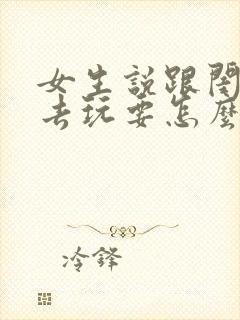 女生說跟閨
去玩要怎麼
冷鋒